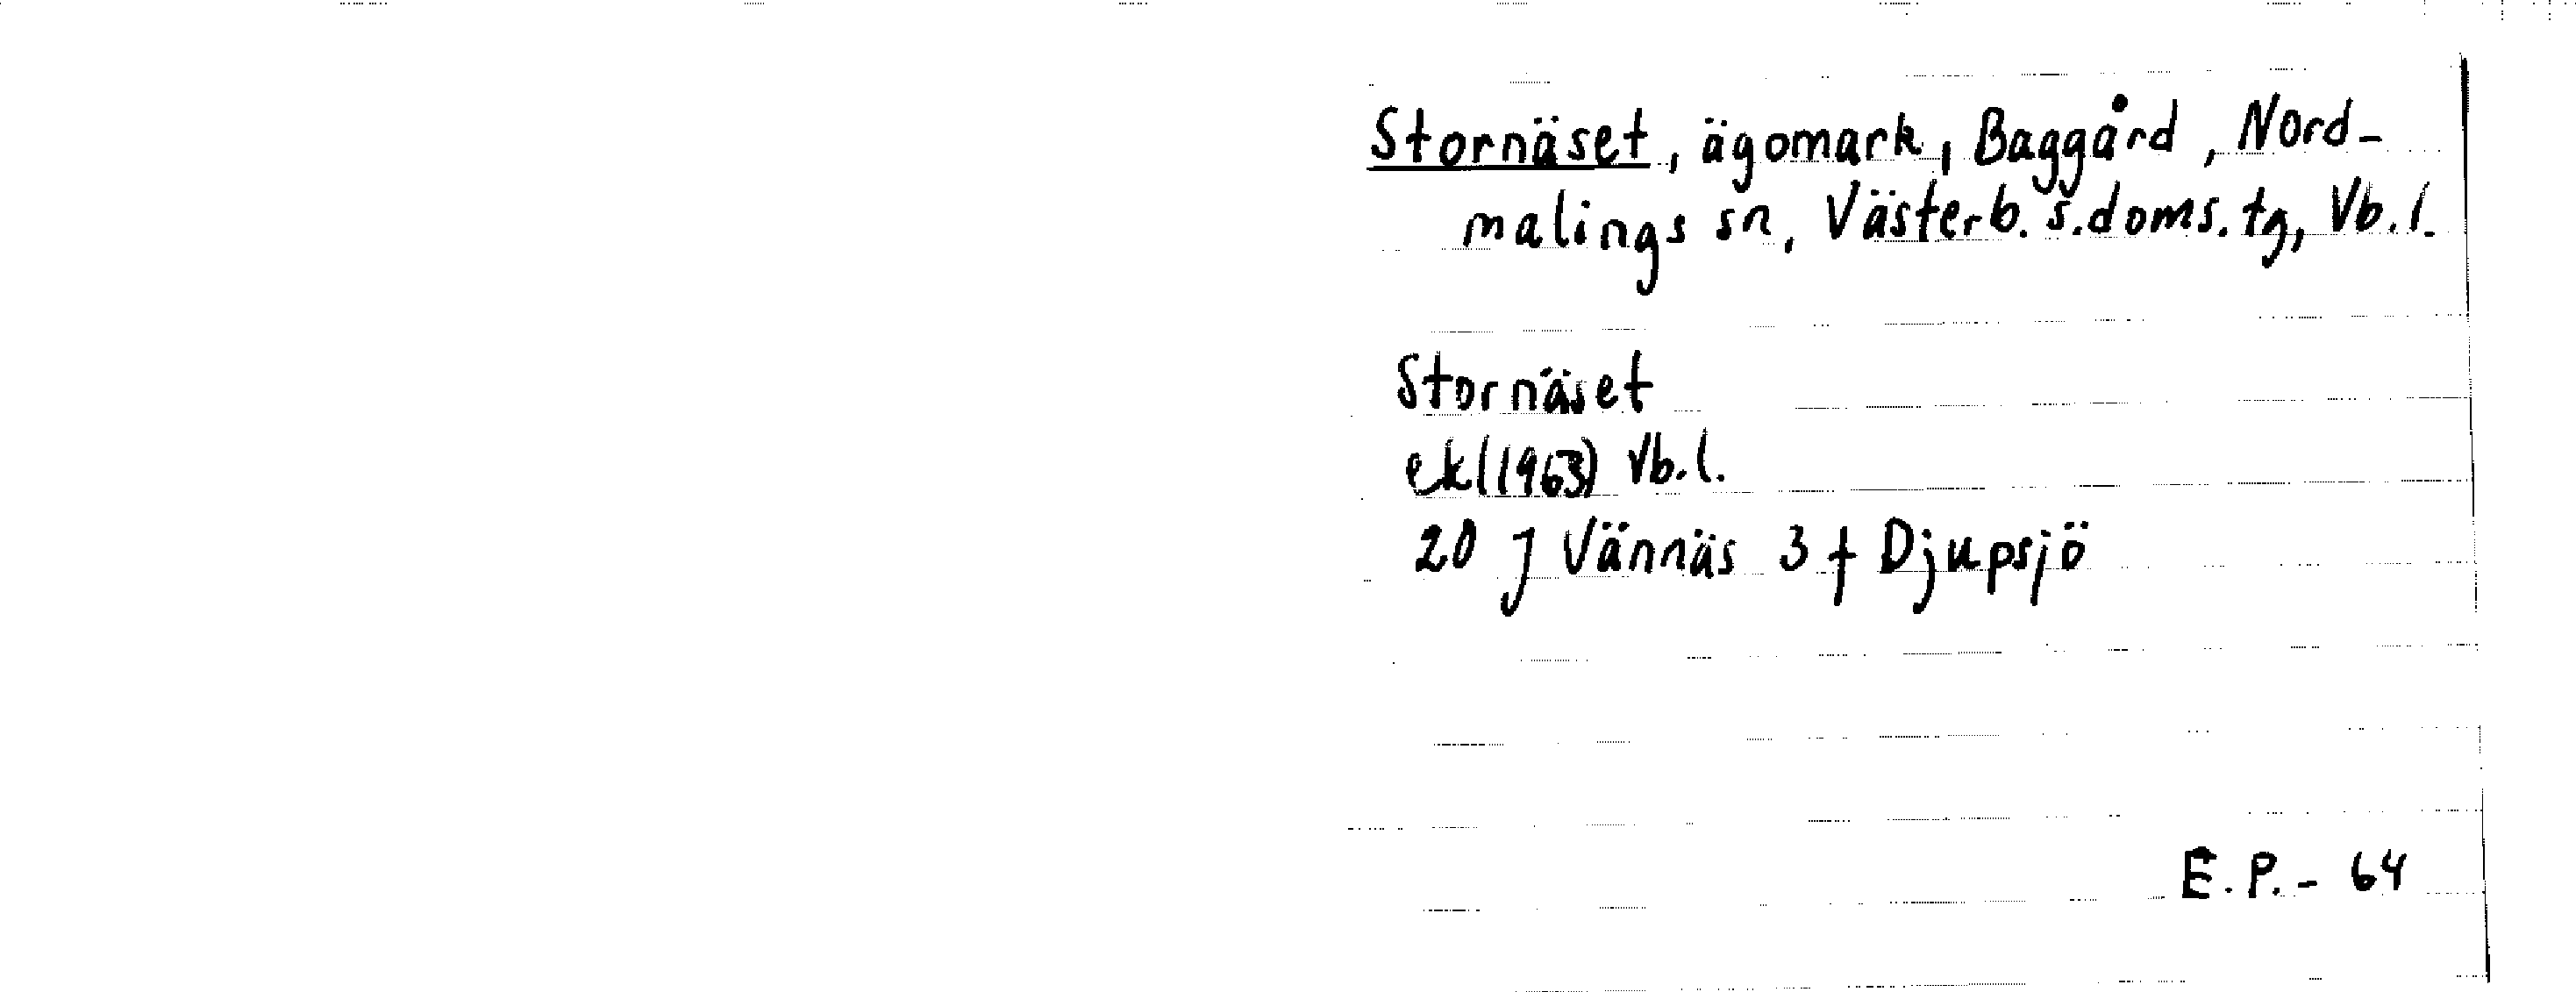 Stornäset, ägomark, Baggård, Nord-
malings sn, Västerb. s. doms. tg, Vb. l.
Stornäset
ek (1963) Vb. l.
20 J Vännäs 3 f Djupsjö
E. P. - 64